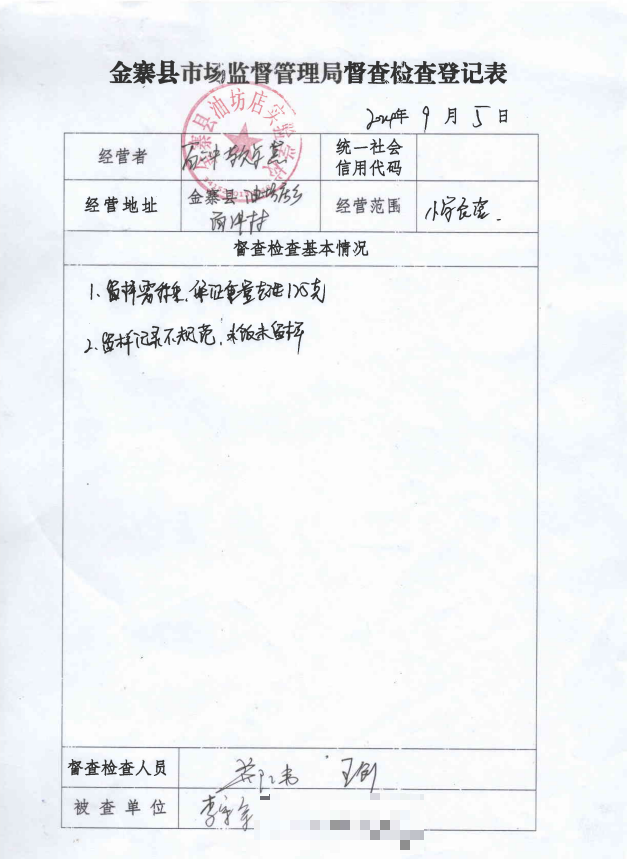 金寨县市场监督管理局督查检查登记表
2024年 9 月 5 日
经营者
统一社会信用代码
金寨县油坊店实验学校
经营地址
金寨县 油坊店乡
面冲村
经营范围
小学食堂.
督查检查基本情况
1. 留样需称重,保证重量超过125克
2. 留样记录不规范,米饭未留样
督查检查人员
被查单位